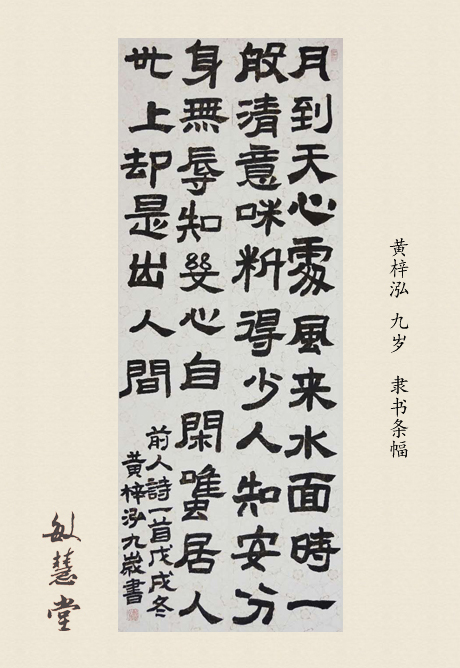 黄梓泓 九岁 隶书条幅
月到天心處風来水面時一
般清意味料得少人知安分
身無辱知幾心自閑雖居人
世上却是出人間
前人詩一首戊戌冬
黄梓泓九歲書
敏慧堂